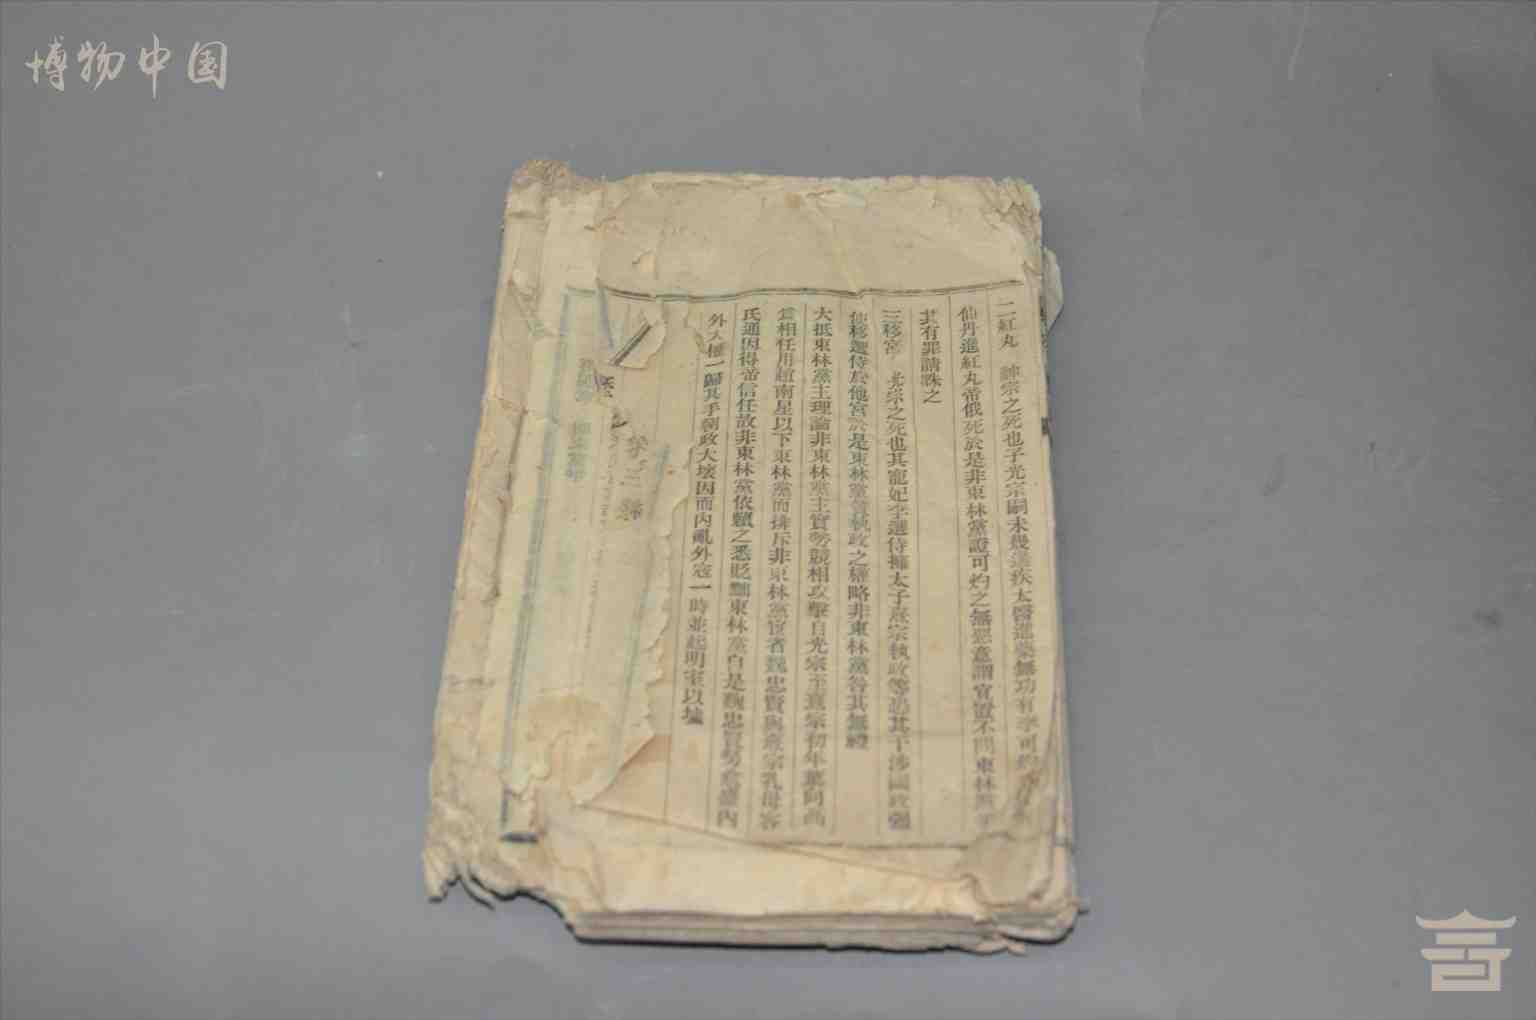 博物中国
二紅丸 神宗之死也子光宗嗣未幾遘疾太醫進藥無功有李可灼
仙丹進紅丸帝俄死於是非東林黨證可灼之無惡意謂宜置不問東林黨
其有罪請誅之
三移宮 光宗之死也其寵妃李選侍擁太子熹宗執政等恐其干涉國政強
使移選侍於他宮於是東林黨贊執政之權略非東林黨咎其無禮
大抵東林黨主理論非東林黨主實勢競相攻擊自光宗至熹宗初年葉向高
為相任用趙南星以下東林黨而排斥非東林黨宦者魏忠賢與熹宗乳母客
氏通因得帝信任故非東林黨依賴之悉貶黜東林黨自是魏忠賢勢愈盛內
外大權一歸其手朝政大壞因而內亂外寇一時並起明室以墟
卷三終